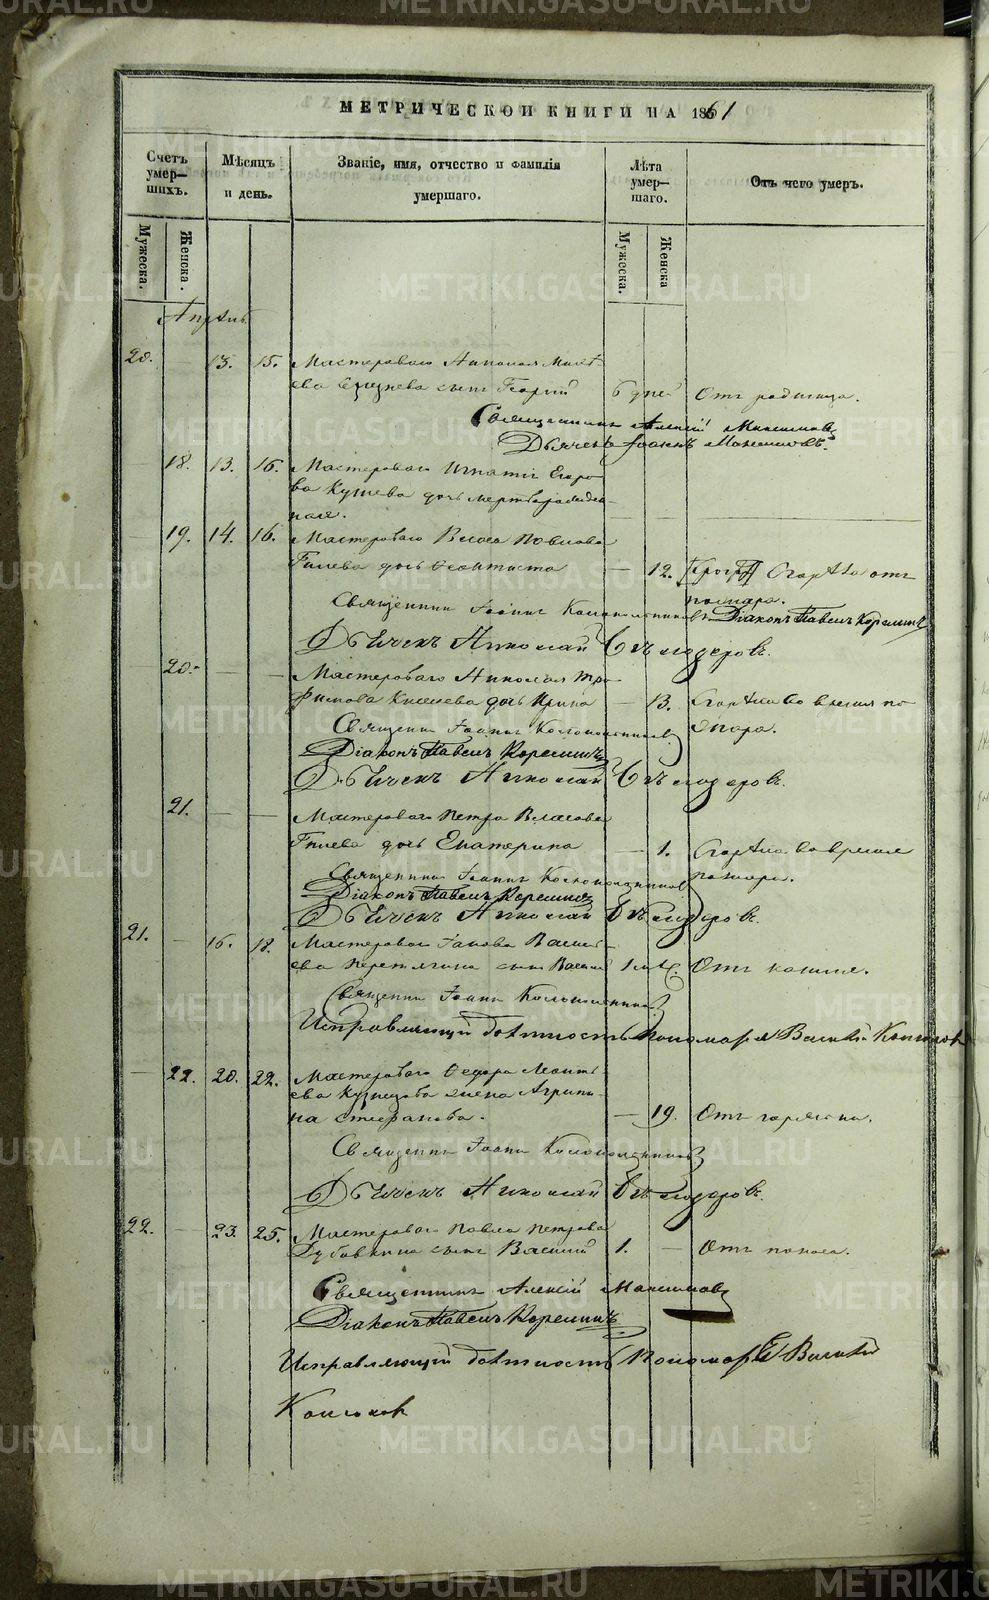 МЕТРИЧЕСКОЙ КНИГИ НА 1861
Счетъ умер-шихъ.
Мѣсяцъ и день.
Званіе, имя, отчество и фамилія умершаго.
Лѣта умер-шаго.
Отъ чего умеръ.
Мужеска.
Женска.
Мужеска.
Женска
Апрѣль
20. — 13. 15. Мастероваго Николая
сынъ Георгій 6 дней Отъ родимца.
Священникъ Алексій Максимовъ
Дьячекъ Іоаннъ
— 18. 13. 16. Мастероваго Игнатія Егоро-
ва дочь мертворожден-
ная.
— 19. 14. 16. Мастероваго Власа Павлова
Гилева дочь — 12. Сгорѣла отъ
пожара.
Священникъ Іоаннъ Колокольниковъ Діаконъ Павелъ Корелинъ
Дьячекъ Николай
— 20. — — Мастероваго Николая Тро-
фимова Киселева дочь Ирина — 13. Сгорѣла во время по-
жара.
Священникъ Іоаннъ Колокольниковъ
Діаконъ Павелъ Корелинъ
Дьячекъ Николай
21. — — Мастероваго Петра Власова
Гилева дочь Екатерина — 1. Сгорѣла во время
пожара.
Священникъ Іоаннъ Колокольниковъ
Діаконъ Павелъ Корелинъ
Дьячекъ Николай
21. — 16. 18. Мастероваго Іакова Василь-
ева Перетягина сынъ Василій 1 мѣс. Отъ кашля.
Священникъ Іоаннъ Колокольниковъ
Исправляющій должность пономаря Василій
— 22. 20. 22. Мастероваго Федора Леонть-
ева Кузнецова жена Агрипи-
на Стефанова. — 19. Отъ горячки.
Священникъ Іоаннъ Колокольниковъ
Дьячекъ Николай
22. — 23. 25. Мастероваго Павла Петрова
Дубавкина сынъ Василій 1. — Отъ поноса.
Священникъ Алексій Максимовъ
Діаконъ Павелъ Корелинъ
Исправляющій должность пономаря Василій
METRIKI.GASO-URAL.RU